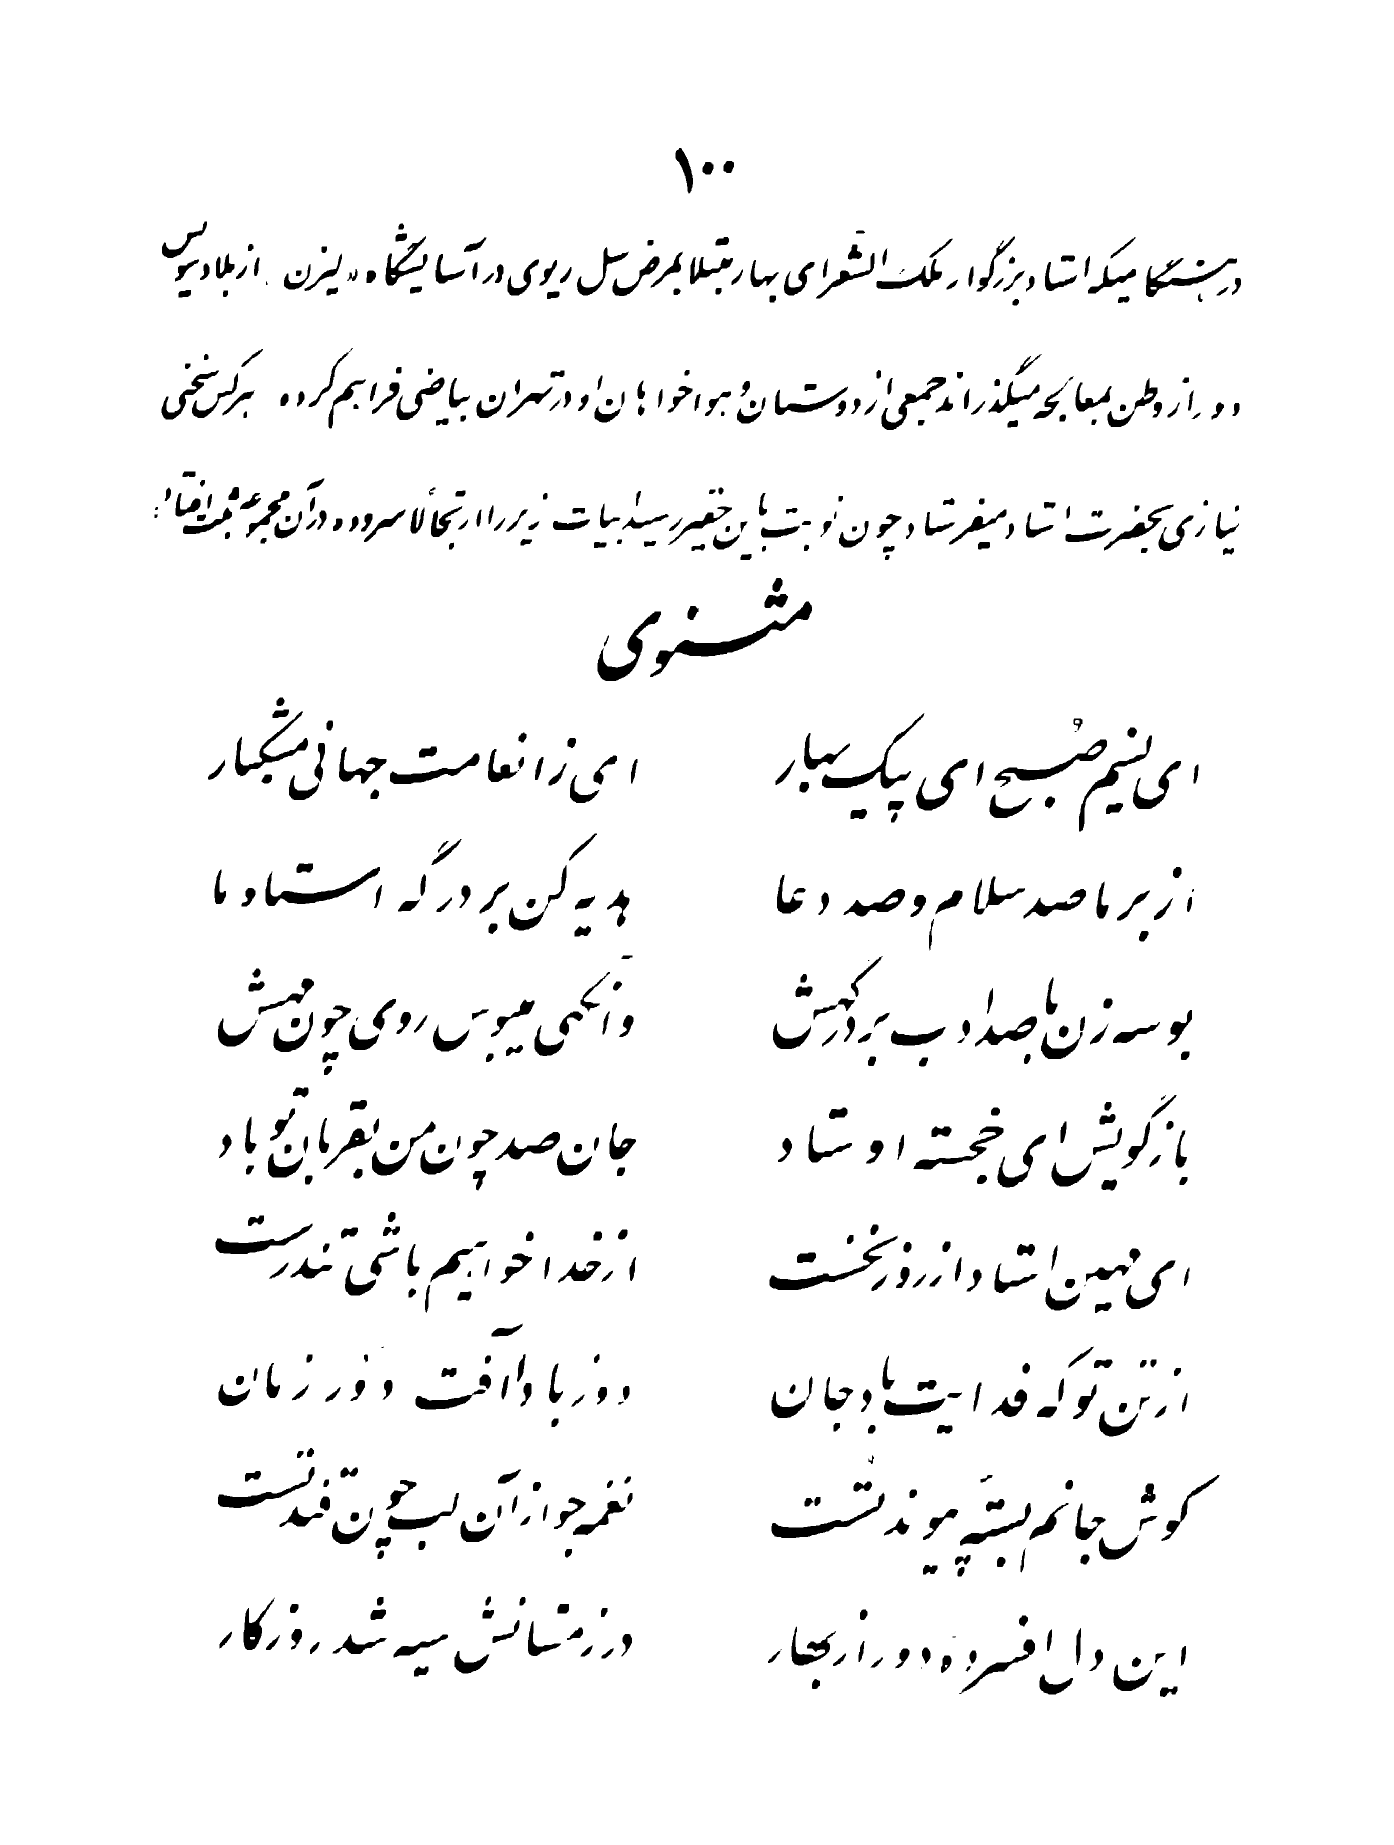 ۱۰۰
در هنگامیکه استاد بزرگوار ملک الشعرای بهار مبتلا بمرض سل ریوی در آسایشگاه «لیزن» از بلاد سویس
دور از وطن بمعالجه میگذراند جمعی از دوستان و هواخواهان او در تهران بیاضی فراهم کرده هر کس سخنی
نیازی بحضرت استاد میفرستاد چون نوبت باین حقیر رسید ابیات زیر را ارتجالاً سروده در آن مجموعه ثبت افتاد:
مثنوی
ای نسیم صبح ای پیک بهار ای ز انعامت جهانی مشکبار
از بر ما صد سلام و صد دعا هدیه کن بر درگه استاد ما
بوسه زن با صد ادب بر درگهش وانگهی میبوس روی چون مهش
باز گویش ای خجسته اوستاد جان صد چون من بقربان تو باد
ای مهین استاد از روز نخست از خدا خواهیم باشی تندرست
از تن تو که فدایت باد جان دور باد آفت دور زمان
گوش جانم بسته پیوند تست نغمه جو از آن لب چون قند تست
این دل افسرده دور از بهار در زمستانش سیه شد روزگار